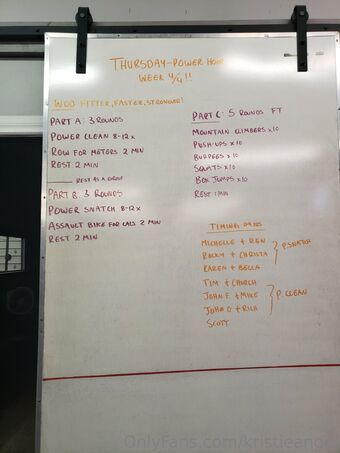 THURSDAY-POWER HOUR
WEEK 4/4!!
WOD FITTER, FASTER, STRONGER!
PART A: 3 ROUNDS
POWER CLEAN 8-12x
ROW FOR METERS 2 MIN
REST 2 MIN
REST AS A GROUP
PART B: 3 ROUNDS
POWER SNATCH 8-12x
ASSAULT BIKE FOR CALS 2 MIN
REST 2 MIN
PART C: 5 ROUNDS FT
MOUNTAIN CLIMBERS x10
PUSH-UPS x10
BURPEES x10
SQUATS x10
BOX JUMPS x10
REST 1 MIN
TIMING
MICHELLE + REN
ROCKY + CHRISTA
KAREN + BELLA
P. SNATCH
TIM + CHURCH
JOHN F. + MIKE
JOHN D. + RICH
P. CLEAN
SCOTT
OnlyFans.com/kristieange